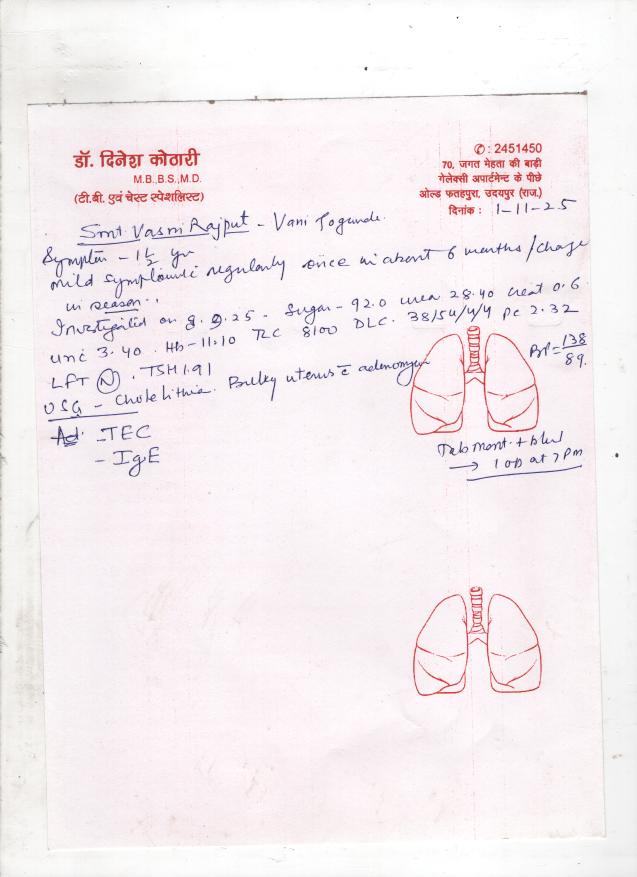 डॉ. दिनेश कोठारी
M.B.,B.S.,M.D.
(टी.बी. एवं चेस्ट स्पेशलिस्ट)
✆ : 2451450
70, जगत मेहता की बाड़ी
गेलेक्सी अपार्टमेन्ट के पीछे
ओल्ड फतहपुरा, उदयपुर (राज.)
दिनांक : 1-11-25
Smt Vasni Rajput - Vani Jogunda.
Symptom - 1 1/2 yr
mild symptoms regularly once in about 6 months / change
in season.
Investigated on 9.25. Sugar - 92.0 urea 28.40 creat 0.6
uric 3.40. Hb - 11.10 TLC 8100 DLC. 38/54/4/4 PC 2.32
LFT (N). TSH 1.91
BP = 138/89.
USG - Cholelithia. Bulky uterus c̄ adenomyo
Ad. - TEC
- IgE
Tab mont. +
→ 1 OD at 7 Pm